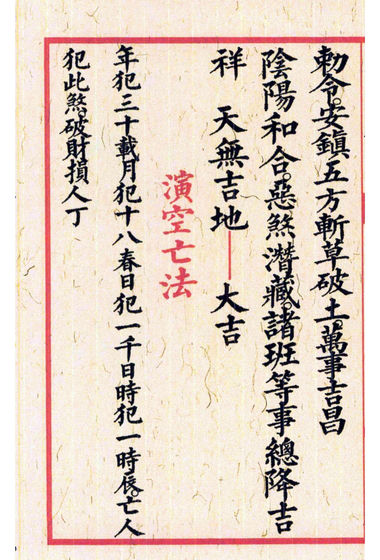 勅令。安鎮五方斬草破土。萬事吉昌
陰陽和合。惡煞潛藏。諸班等事總降吉
祥　天無吉地——大吉
演空亡法
年犯三十載月犯十八春日犯一千日時犯一時辰。亡人
犯此煞。破財損人丁